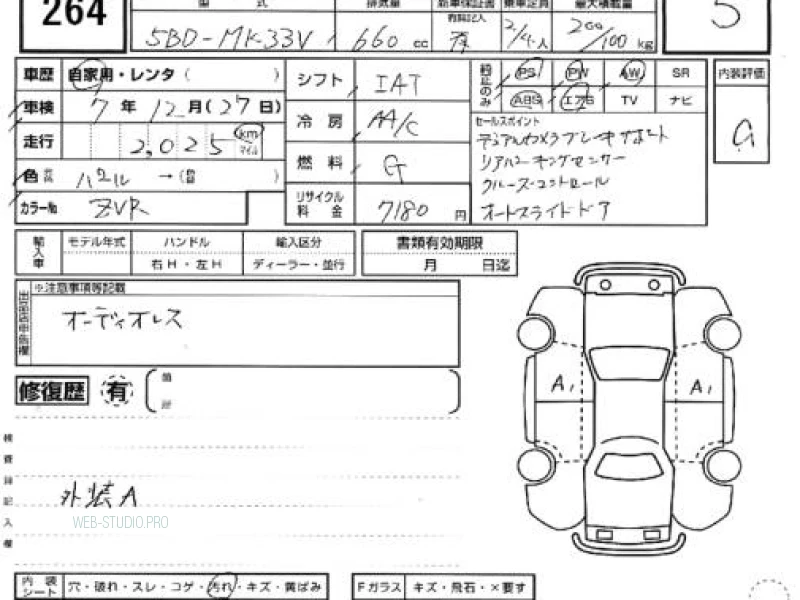 264
型 式
排気量
新車保証書 乗車定員 最大積載量
有 2/4人 200/100kg
5BD-MK33V 660cc
5
車歴 自家用・レンタ ( )
車検 7年12月(27日)
走行 2,025 km マイル
色 パール →( )
カラー№ ZVR
シフト IAT
冷房 AA/C
燃料 G
リサイクル料金 7180円
純正のみ PS PW AW SR
ABS エアB TV ナビ
セールスポイント
デュアルカメラブレーキサポート
リアパーキングセンサー
クルーズコントロール
オートスライドドア
内装評価
a
輸入車 モデル年式 ハンドル 輸入区分
右H・左H ディーラー・並行
書類有効期限
月 日迄
出品店申告欄
※注意事項等記載
オーディオレス
修復歴 有
A1 A1
検査記入欄
外装A
WEB-STUDIO.PRO
内装シート 穴・破れ・スレ・コゲ・汚れ・キズ・黄ばみ
Fガラス キズ・飛石・×要す